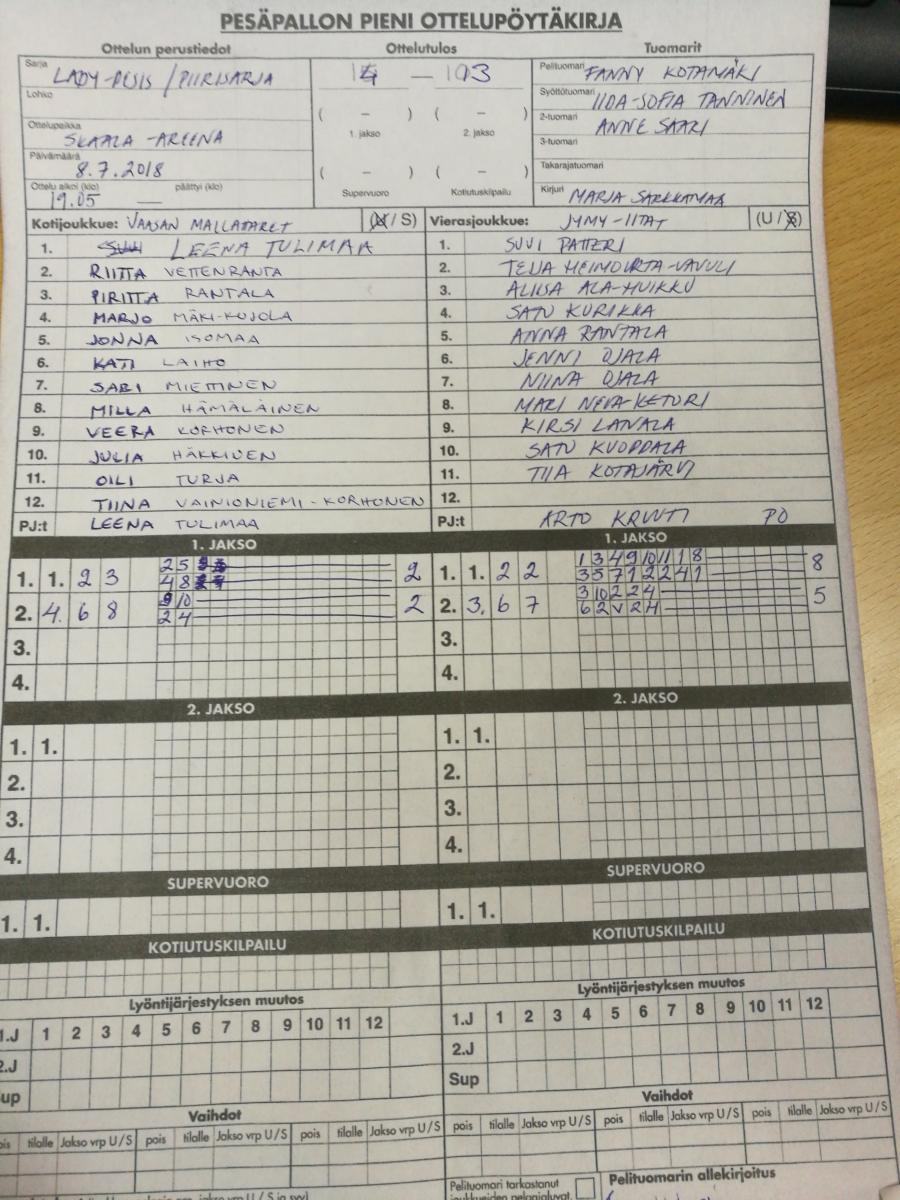 PESÄPALLON PIENI OTTELUPÖYTÄKIRJA
Ottelun perustiedot
Sarja LADY-PESIS / PIIRISARJA
Lohko
Ottelupaikka SKAALA-AREENA
Päivämäärä 8.7.2018
Ottelu alkoi (klo) päättyi (klo)
19.05 —
Ottelutulos
— 13
( – ) ( – )
1. jakso 2. jakso
( – ) ( – )
Supervuoro Kotiutuskilpailu
Tuomarit
Pelituomari FANNY KOTAMÄKI
Syöttötuomari IIDA-SOFIA TANNINEN
2-tuomari ANNE SAARI
3-tuomari
Takarajatuomari
Kirjuri MARJA
Kotijoukkue: VAASAN MALLATARET (U / S)
1. LEENA TULIMAA
2. RIITTA VETTENRANTA
3. PIRITTA RANTALA
4. MARJO MÄKI-KOJOLA
5. JONNA ISOMAA
6. KATI LAIHO
7. SARI MIETTINEN
8. MILLA HÄMÄLÄINEN
9. VEERA KORHONEN
10. JULIA HÄKKINEN
11. OILI TURJA
12. TIINA VAINIONIEMI-KORHONEN
PJ:t LEENA TULIMAA
Vierasjoukkue: JYMY-IITAT (U / S)
1. SUVI PATTERI
2. TEIJA
3. ALIISA ALA-HUIKKU
4. SATU KURIKKA
5. ANNA RANTALA
6. JENNI OJALA
7. NIINA OJALA
8. MARI NEVA-KETURI
9. KIRSI LATVALA
10. SATU KUOPPALA
11. TIIA KOTAJÄRVI
12.
PJ:t ARTO KRUUTI PO
1. JAKSO
1. 1. 2 3 2 5 4 8 2
2. 4. 6 8 9 10 2 4 2
3.
4.
1. JAKSO
1. 1. 2 2 1 3 4 9 10 11 1 8 3 5 7 1 2 2 4 1 8
2. 3. 6 7 3 10 2 2 4 6 2 V 2 4 5
3.
4.
2. JAKSO
1. 1.
2.
3.
4.
2. JAKSO
1. 1.
2.
3.
4.
SUPERVUORO
1. 1.
SUPERVUORO
1. 1.
KOTIUTUSKILPAILU
KOTIUTUSKILPAILU
Lyöntijärjestyksen muutos
1.J 1 2 3 4 5 6 7 8 9 10 11 12
2.J
Sup
Lyöntijärjestyksen muutos
1.J 1 2 3 4 5 6 7 8 9 10 11 12
2.J
Sup
Vaihdot
pois tilalle Jakso vrp U/S pois tilalle Jakso vrp U/S pois tilalle Jakso vrp U/S
Vaihdot
pois tilalle Jakso vrp U/S pois tilalle Jakso vrp U/S pois tilalle Jakso vrp U/S
Pelituomari tarkastanut
joukkueiden pelaajaluvat.
Pelituomarin allekirjoitus